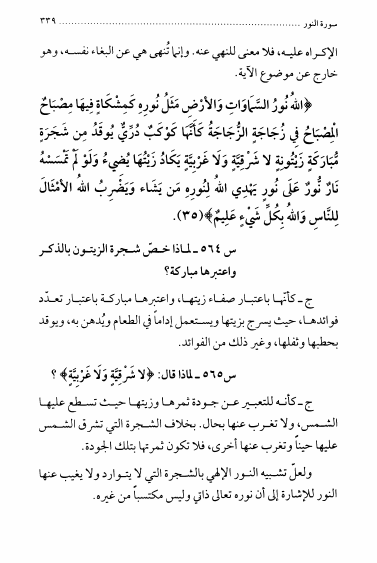 سورة النور ........................................ ٣٣٩
الإكراه عليه، فلا معنى للنهي عنه. وإنما تُنهى هي عن البغاء نفسه، وهو
خارج عن موضوع الآية.
﴿اللهُ نُورُ السَّمَاوَاتِ وَالأَرْضِ مَثَلُ نُورِهِ كَمِشْكَاةٍ فِيهَا مِصْبَاحٌ
الْمِصْبَاحُ فِي زُجَاجَةٍ الزُّجَاجَةُ كَأَنَّهَا كَوْكَبٌ دُرِّيٌّ يُوقَدُ مِن شَجَرَةٍ
مُّبَارَكَةٍ زَيْتُونِةٍ لا شَرْقِيَّةٍ وَلا غَرْبِيَّةٍ يَكَادُ زَيْتُهَا يُضِيءُ وَلَوْ لَمْ تَمْسَسْهُ
نَارٌ نُّورٌ عَلَى نُورٍ يَهْدِي اللهُ لِنُورِهِ مَن يَشَاء وَيَضْرِبُ اللهُ الأَمْثَالَ
لِلنَّاسِ وَاللهُ بِكُلِّ شَيْءٍ عَلِيمٌ﴾(٣٥).
س ٥٦٤ ـ لماذا خصّ شجرة الزيتون بالذكر
واعتبرها مباركة؟
ج ـ كأنّها باعتبار صفاء زيتها، واعتبرها مباركة باعتبار تعدّد
فوائدها، حيث يسرج بزيتها ويستعمل إداماً في الطعام ويُدهن به، ويوقد
بحطبها وثفلها، وغير ذلك من الفوائد.
س٥٦٥ ـ لماذا قال: ﴿لا شَرْقِيَّةٍ وَلَا غَرْبِيَّةٍ﴾ ؟
ج ـ كأنه للتعبير عن جودة ثمرها وزيتها حيث تسطع عليها
الشمس، ولا تغرب عنها بحال. بخلاف الشجرة التي تشرق الشمس
عليها حيناً وتغرب عنها أخرى، فلا تكون ثمرتها بتلك الجودة.
ولعلّ تشبيه النور الإلهي بالشجرة التي لا يتوارد ولا يغيب عنها
النور للإشارة إلى أن نوره تعالى ذاتي وليس مكتسباً من غيره.